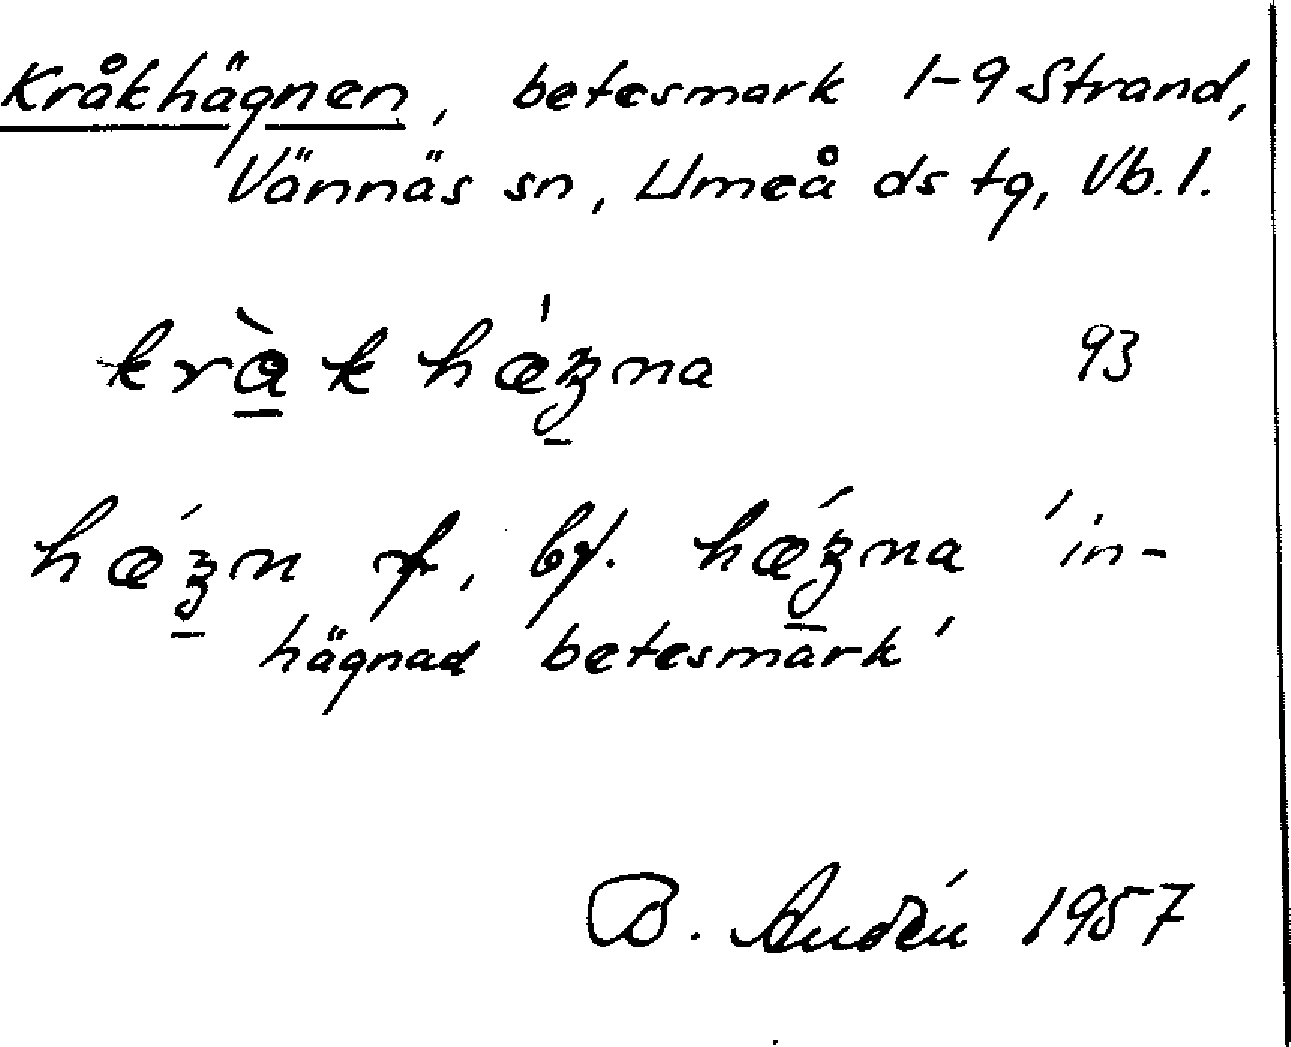 Kråkhägnen, betesmark 1-9 Strand,
Vännäs sn, Umeå ds tg, Vb. l.
kràk hǽʒna 93
hǽʒn f, bf. hǽʒna 'in-
hägnad betesmark'
B. Audén 1957